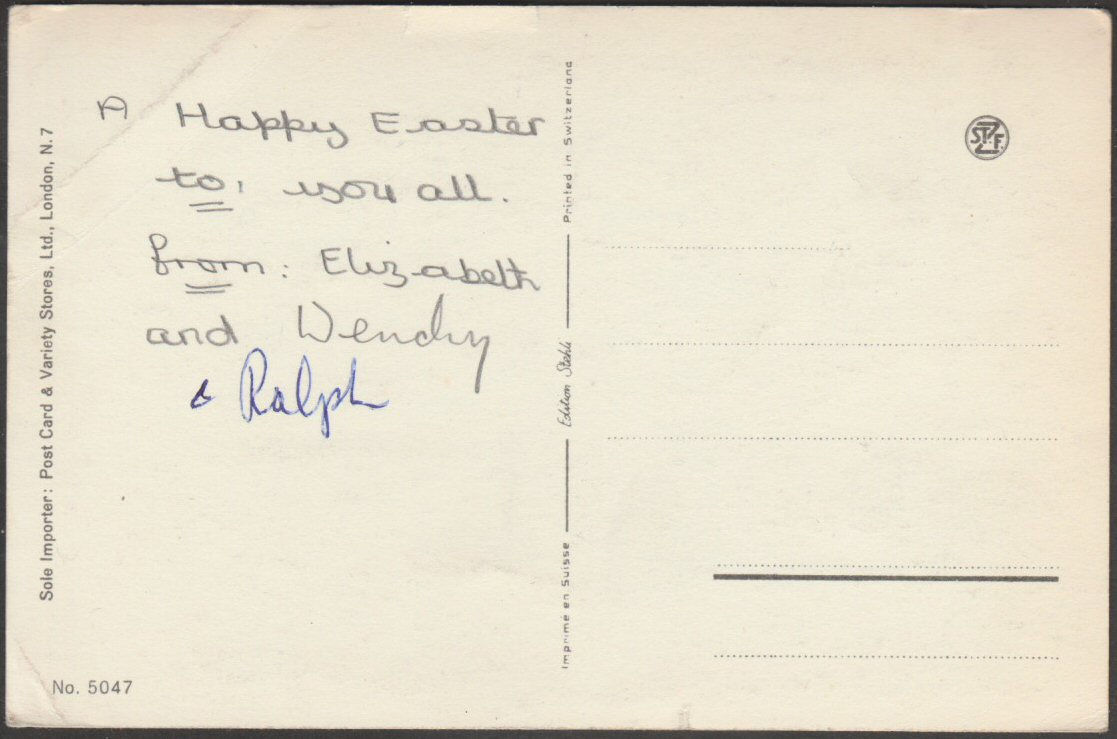 A Happy Easter
to: you all.
from: Elizabeth
and Wendy
& Ralph
Sole Importer: Post Card & Variety Stores, Ltd., London, N.7
No. 5047
Imprimé en Suisse
Edition Stehli
Printed in Switzerland
STZF